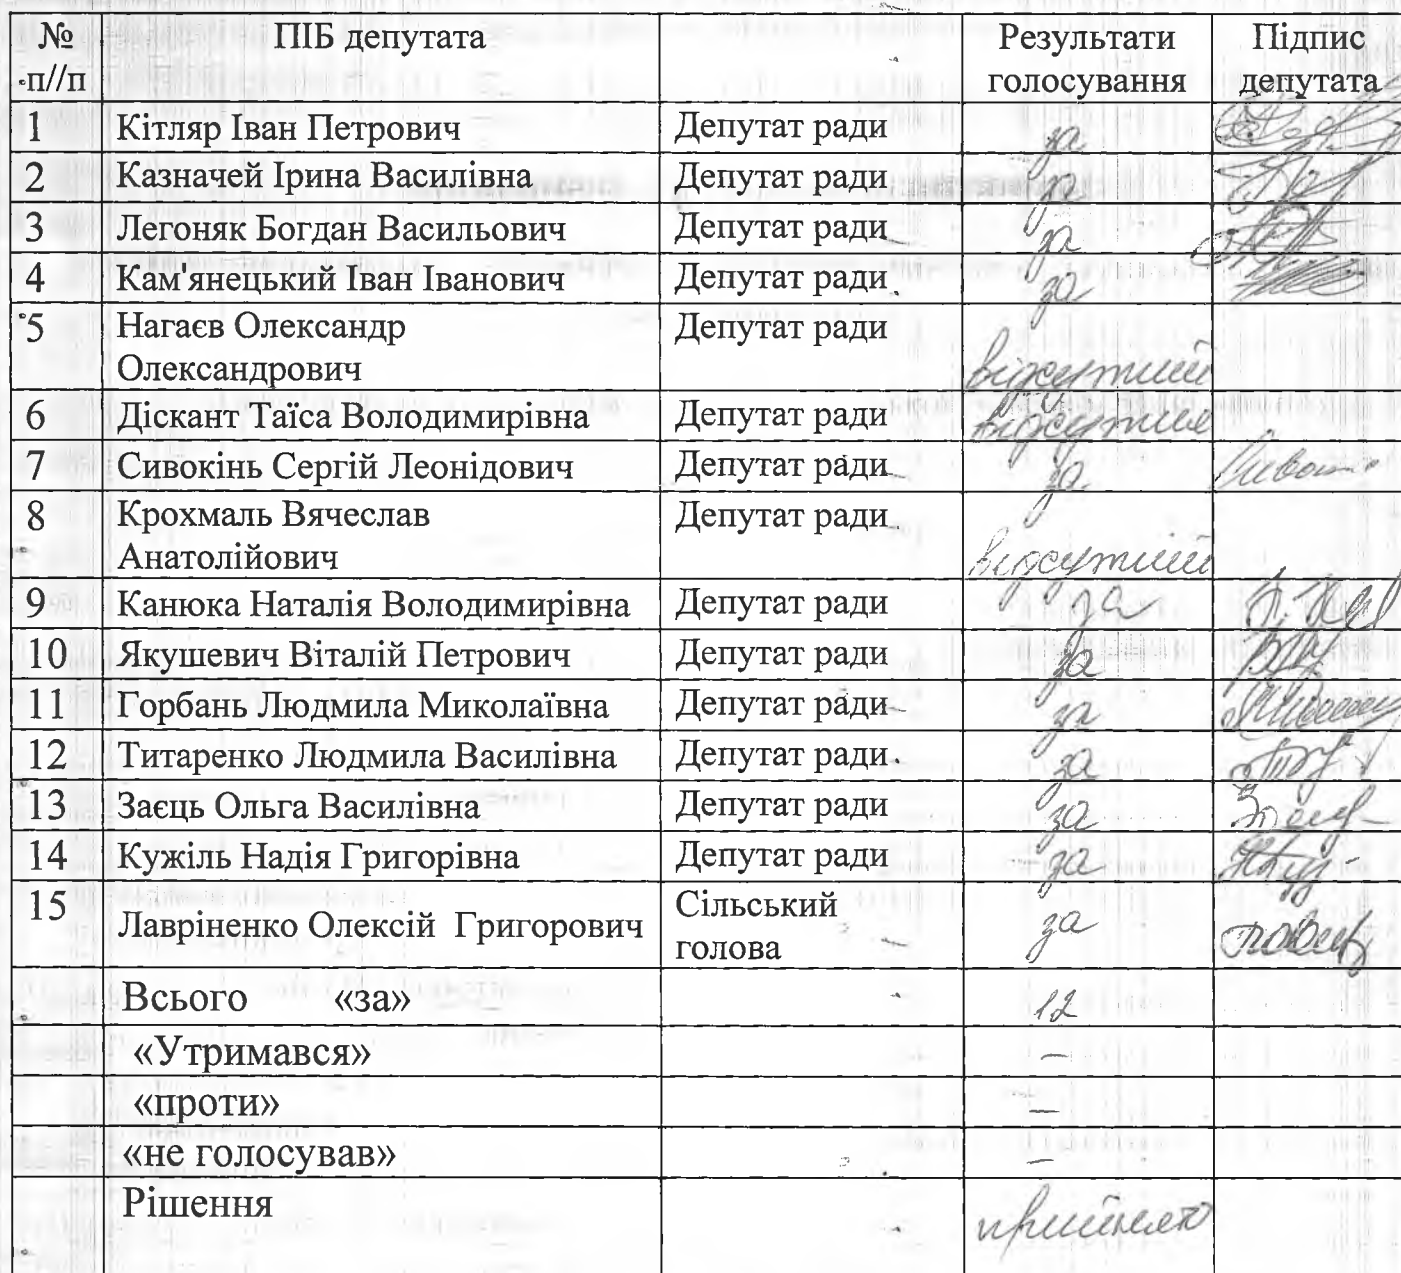 № ПІБ депутата Результати Підпис
п//п голосування депутата
1 Кітляр Іван Петрович Депутат ради за
2 Казначей Ірина Василівна Депутат ради за
3 Легоняк Богдан Васильович Депутат ради за
4 Кам'янецький Іван Іванович Депутат ради за
5 Нагаєв Олександр Депутат ради
Олександрович відсутній
6 Діскант Таїса Володимирівна Депутат ради відсутня
7 Сивокінь Сергій Леонідович Депутат ради за
8 Крохмаль Вячеслав Депутат ради
Анатолійович відсутній
9 Канюка Наталія Володимирівна Депутат ради за
10 Якушевич Віталій Петрович Депутат ради за
11 Горбань Людмила Миколаївна Депутат ради за
12 Титаренко Людмила Василівна Депутат ради за
13 Заєць Ольга Василівна Депутат ради за
14 Кужіль Надія Григорівна Депутат ради за
15 Лавріненко Олексій Григорович Сільський за
голова
Всього «за» 12
«Утримався» –
«проти» –
«не голосував» –
Рішення прийнято